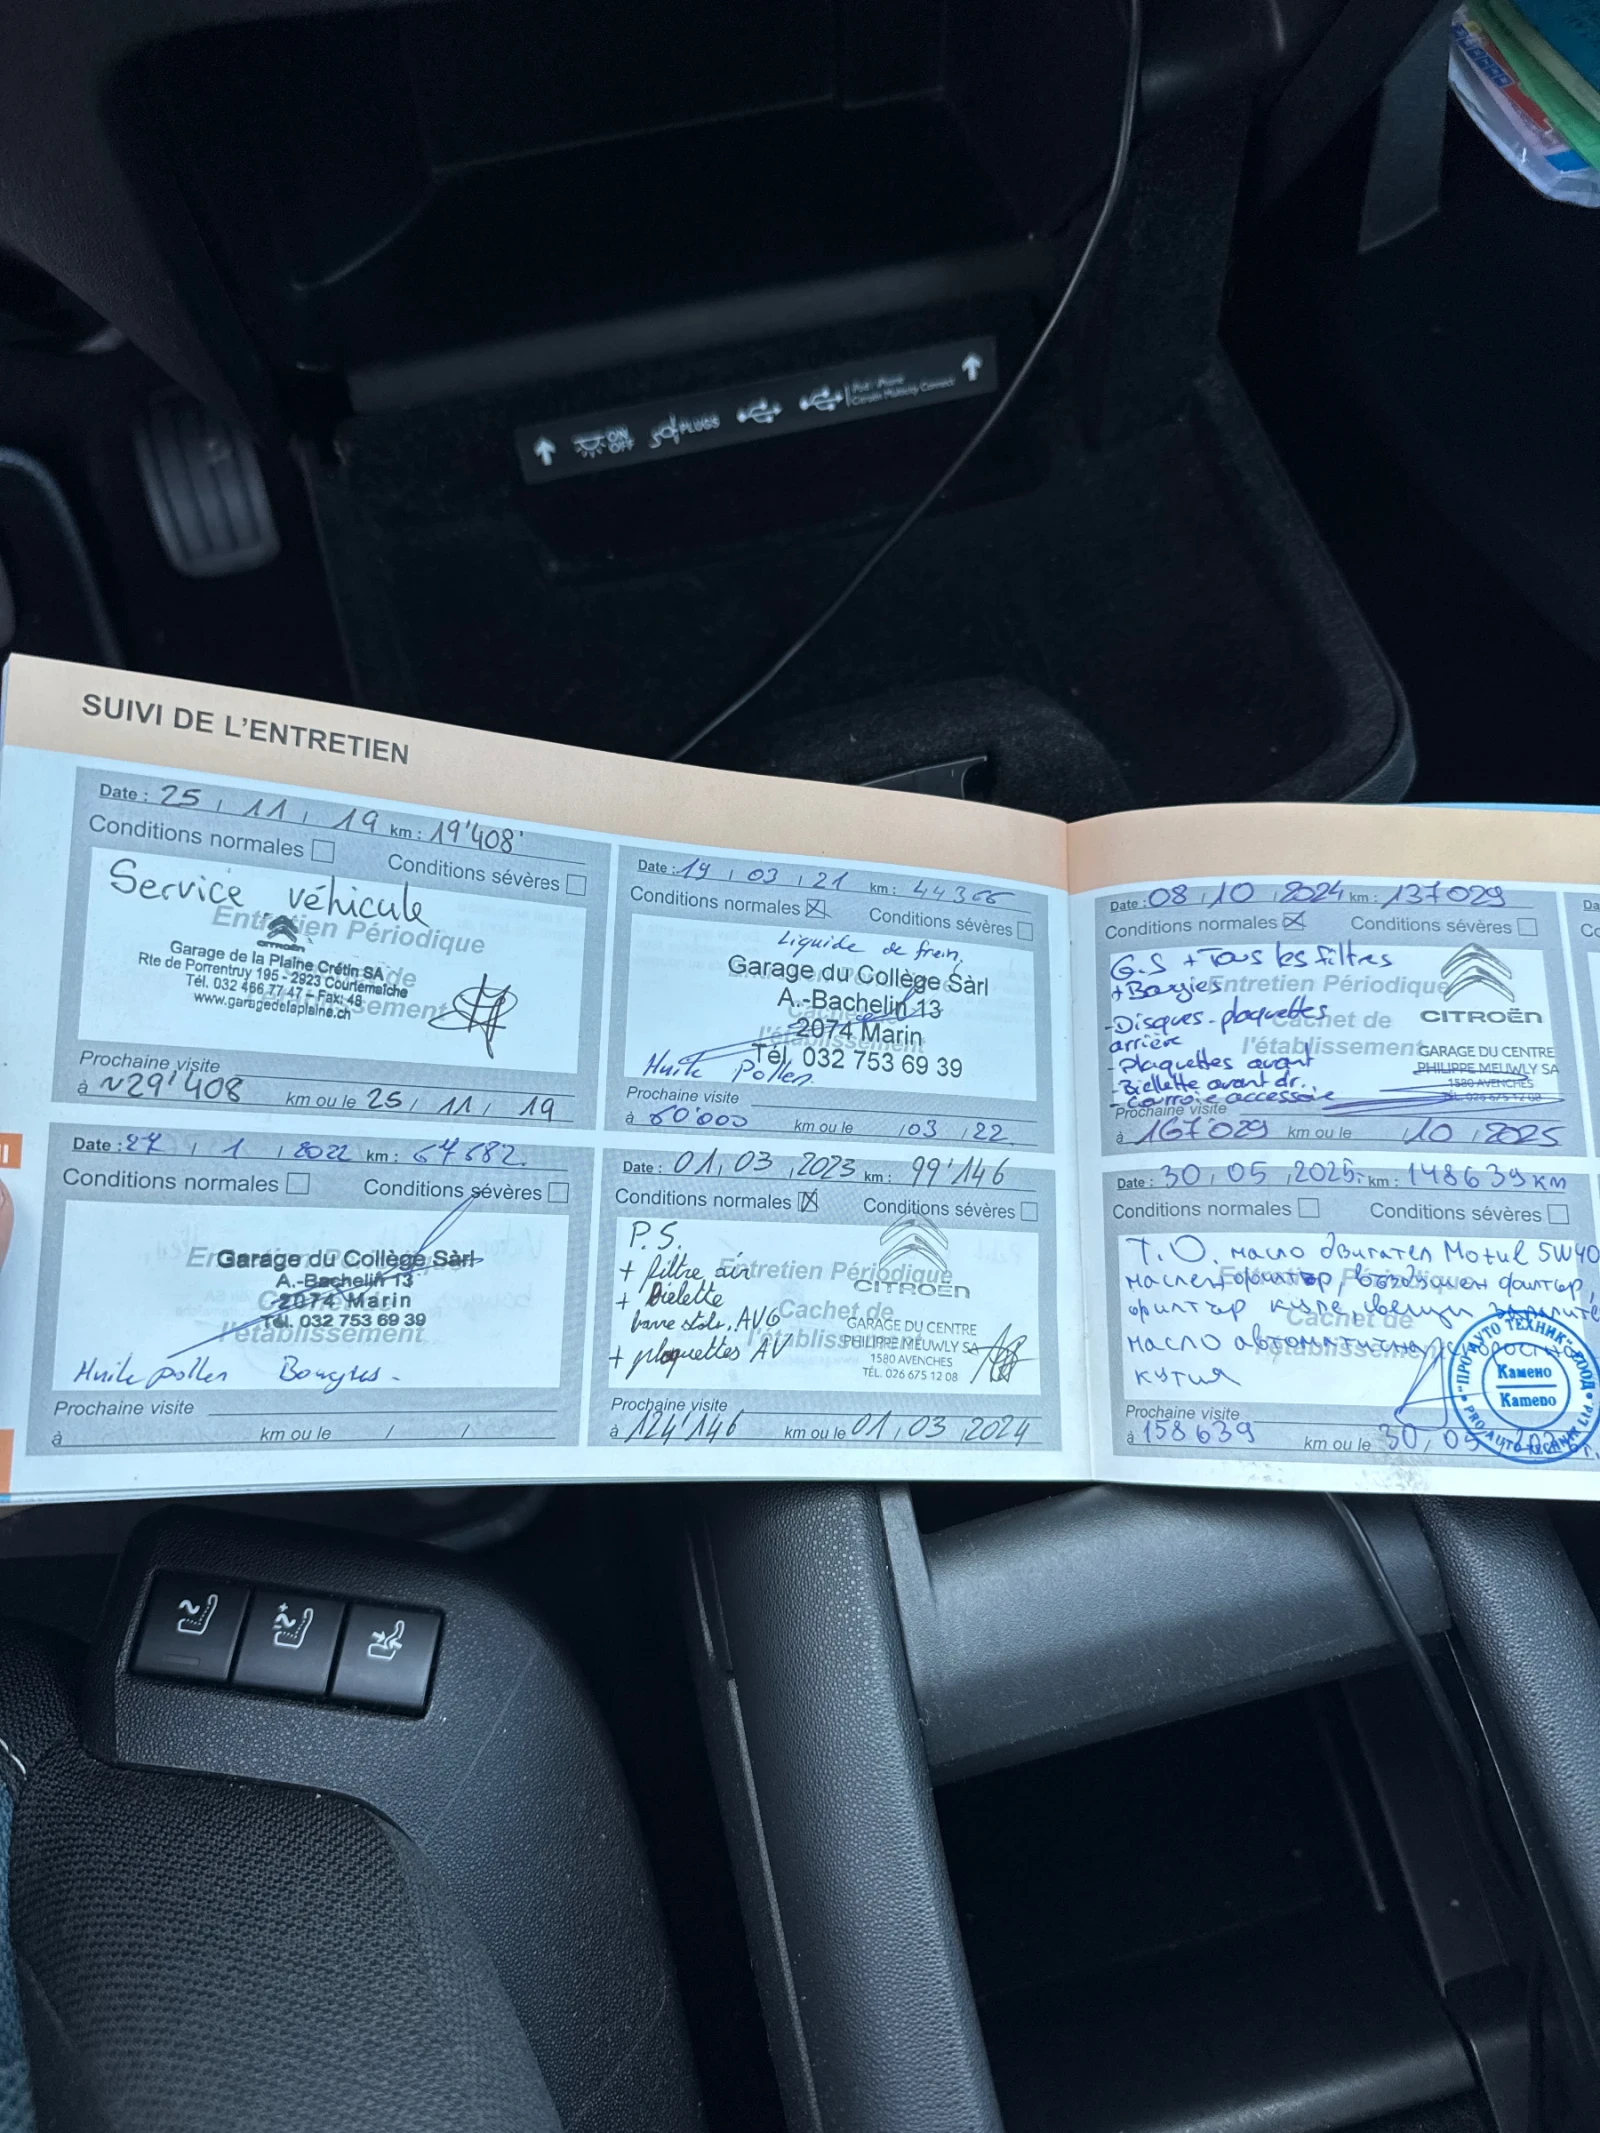 ON
OFF
PLUGS
SUIVI DE L'ENTRETIEN
Date : 25 / 11 / 19 km : 19'408'
Conditions normales
Conditions sévères
Service véhicule
Entretien Périodique
CITROËN
Garage de la Plaine Crétin SA
Rte de Porrentruy 195 - 2923 Courtemaîche
Tél. 032 466 77 47 - Fax: 48
www.garagedelaplaine.ch
Prochaine visite
à ~29'408 km ou le 25 / 11 / 19
Date : 19 / 03 / 21 km : 44366
Conditions normales
Conditions sévères
Liquide de frein,
Garage du Collège Sàrl
A.-Bachelin 13
2074 Marin
Tél. 032 753 69 39
Huile Pollen
Prochaine visite
à 60'000 km ou le /03 /22
Date : 27 / 1 / 2022 km : 67682
Conditions normales
Conditions sévères
Garage du Collège Sàrl
A.-Bachelin 13
2074 Marin
Tél. 032 753 69 39
l'établissement
Huile pollen Bougies -
Prochaine visite
à km ou le / /
Date : 01 / 03 / 2023 km : 99'146
Conditions normales
Conditions sévères
P.S.
+ filtre air
Entretien Périodique
CITROËN
+ Bielette
Cachet de
barre stab. AVG
GARAGE DU CENTRE
l'établissement
PHILIPPE MEUWLY SA
+ plaquettes AV
1580 AVENCHES
TÉL. 026 675 12 08
Prochaine visite
à 124'146 km ou le 01 / 03 / 2024
Date : 08 / 10 / 2024 km : 137029
Conditions normales
Conditions sévères
G.S + Tous les filtres
+ Bougies
Entretien Périodique
- Disques - plaquettes
Cachet de
CITROËN
arrière
l'établissement
GARAGE DU CENTRE
- Plaquettes avant
PHILIPPE MEUWLY SA
- Biellette avant dr.
1580 AVENCHES
- Courroie accessoire
TÉL. 026 675 12 08
Prochaine visite
à 167'029 km ou le /10 / 2025
Date : 30 / 05 / 2025г. km : 148639 км
Conditions normales
Conditions sévères
Т.О. масло двигател Motul 5W40
маслен филтър, въздушен филтър,
филтър купе, свещи
Cachet de
масло автоматична скоростна
кутия
"ПРО АУТО ТЕХНИК" ЕООД
Камено
Kameno
Prochaine visite
à 158639 km ou le 30 / 05